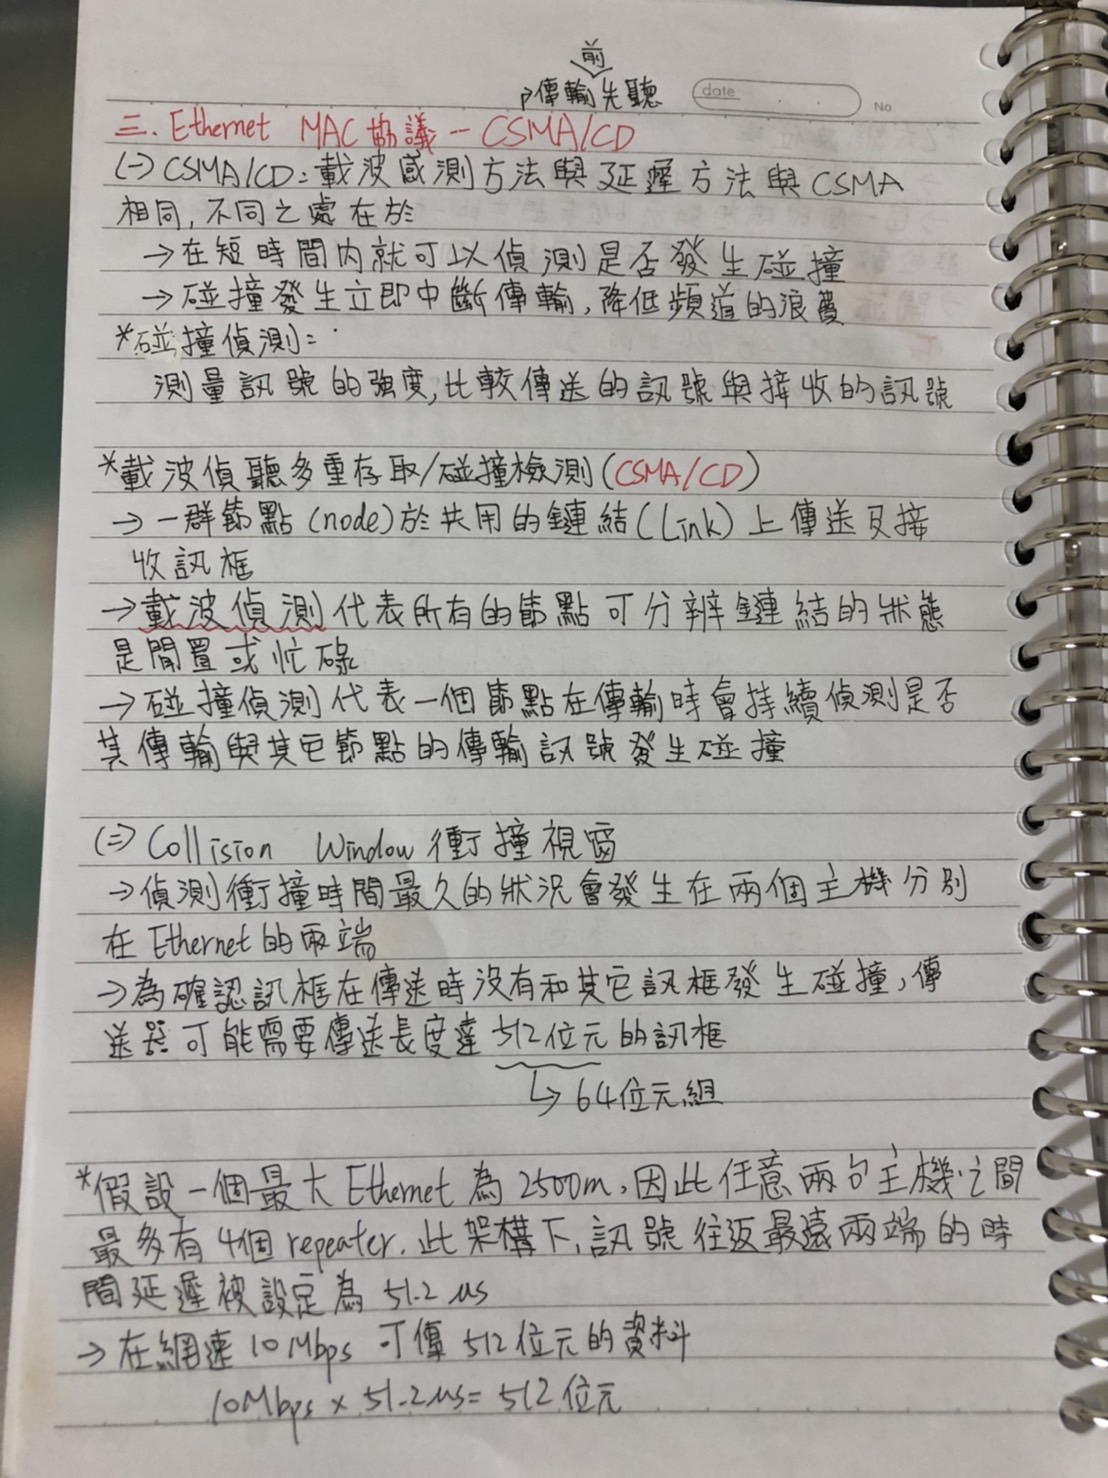 前
傳輸先聽
date
No
三. Ethernet MAC協議 - CSMA/CD
(一) CSMA/CD:載波感測方法與延遲方法與CSMA
相同,不同之處在於
→在短時間內就可以偵測是否發生碰撞
→碰撞發生立即中斷傳輸,降低頻道的浪費
*碰撞偵測:
測量訊號的強度,比較傳送的訊號與接收的訊號
*載波偵聽多重存取/碰撞檢測(CSMA/CD)
→一群節點(node)於共用的鏈結(Link)上傳送及接
收訊框
→載波偵測代表所有的節點可分辨鏈結的狀態
是閒置或忙碌
→碰撞偵測代表一個節點在傳輸時會持續偵測是否
其傳輸與其它節點的傳輸訊號發生碰撞
(二) Collision Window 衝撞視窗
→偵測衝撞時間最久的狀況會發生在兩個主機分別
在Ethernet的兩端
→為確認訊框在傳送時沒有和其它訊框發生碰撞,傳
送器可能需要傳送長度達512位元的訊框
↳64位元組
*假設一個最大Ethernet為2500m,因此任意兩台主機之間
最多有4個repeater.此架構下,訊號往返最遠兩端的時
間延遲被設定為51.2μs
→在網速10Mbps可傳512位元的資料
10Mbps×51.2μs=512位元